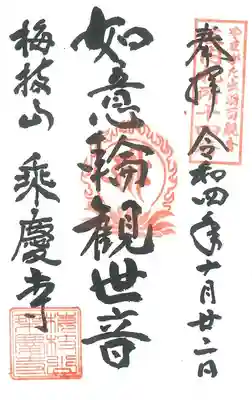 奉拝 令和四年十月廿二日
如意輪観世音
梅枝山 乗慶寺